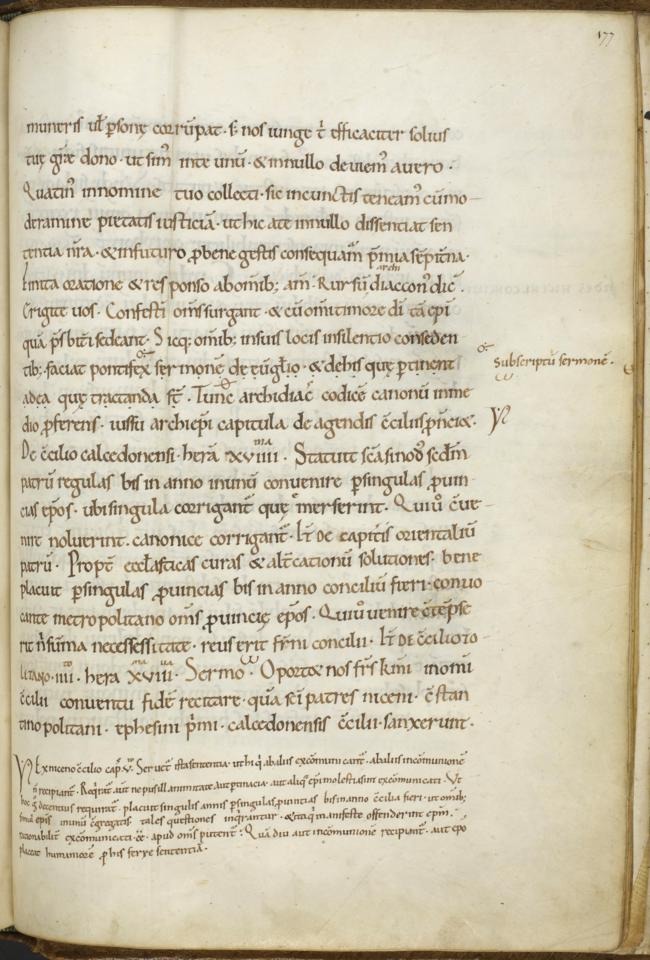 177
muneris ul̄ p̱sonę corrūpat · s; nos iunge t̄ efficaciter solius
tuę gr̄ę dono · ut sim̄ in te unū · & in nullo deuiem̄ a uero ·
Quatin̄ in nomine tuo collecti · sic in cunctis teneam̄ cū mo
deramine pietatis iusticiā · ut hic a te in nullo dissentiat sen
tentia nr̄a · & in futuro ꝓ bene gestis consequam̄ p̄mia sēpit̄na ·
Finita oratione & responso ab om̄ib; am̄ · Rursū archidiacon̄ dic̄ ·
Erigite uos · Confesti om̄s surgant · & cū om̄i timore dī tā ep̄i
quā p̄sbit̄i sedeant · Sicq; om̄ib; in suis locis in silentio conseden
tib; faciat pontifex sermonē de euḡlio · & de his quę p̱tinent
Subscriptū sermonē ·
ad ea quę tractanda sт̄ · Tunc archidiac̄ codicē canonū in me
dio ꝓferens · iussu archiep̄i capitula de agendis c̄ciliis p̄neiat ·
De c̄cilio calcedonensi · hera xviiii ma · Statuit sc̄a sinod̄ sedm̄
patrū regulas bis in anno in unū conuenire p̱ singulas ꝓuin
cias ep̄os · ubi singula corrigant̄ quę emerserint · Qui ū c̄ue
nire noluerint · canonice corrigant̄ · It̄ De capit̄is orientaliū
patrū · Propt̄ eccl̄asticas curas & alt̄cationū solutiones · bene
placuit p̱ singulas ꝓuincias bis in anno conciliū fieri · conuo
cante metropolitano om̄s ꝓuincię ep̄os · Qui ū uenire c̄tēpse
rit n̄ sūma necessessitate · reus erit fr̄ni concilii · It̄ De c̄cilio to
litano · iiii to · hera xviii ma ua · Sermo · Oport& nos fr̄s km̄i in om̄i
c̄cilii conuentu fidē recitare · quā sc̄i patres niceni · c̄stan
tinopolitani · ephesini p̄mi · calcedonensis c̄cilii sanxerunt ·
Ex niceno c̄cilio cap̄ · v · Seruet̄ ista sententia · ut hi q̇ ab aliis excōmunicant̄ · ab aliis in cōmunionē
n̄ recipiant̄ · Req̇rat̄ aut̄ ne pusillanimitate aut p̱tinacia · aut aliq̇ ep̄i molestia sint excōmunicati · Ut
hoc ḡ decentius requirat̄ · placuit singulis annis p̱ singulas ꝓuintias bis in anno c̄cilia fieri · ut om̄ib;
simul ep̄is in unū c̄gregatis tales questiones inq̇rantur · & sic q̇ manifeste offenderint ep̄m ·
rationabilit̄ excōmunicati e͞e · apud om̄s putent̄ · Quā diu aut in cōmunionē recipiant̄ · aut ep̄o
placeat humaniorē ꝓ his ferre sententiā ·